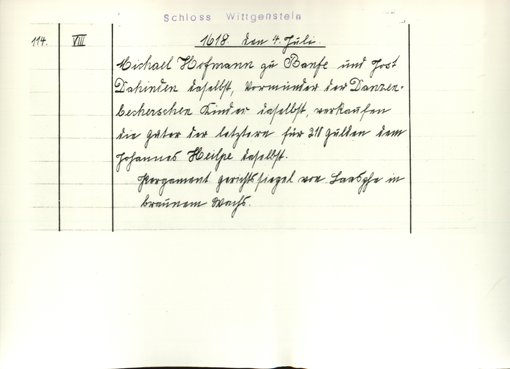 Schloss Wittgenstein
114. VIII 1618 den 4. Juli.
Michael Hofmann zu Banfe und Jost
Dahinden daselbst, Vormünder der Dannen-
becherschen Kinder daselbst, verkaufen
die güter der letztere für 311 gulden dem
Johannes daselbst.
Pergament. gerichtssiegel von Laasphe in
braunem Wachs.